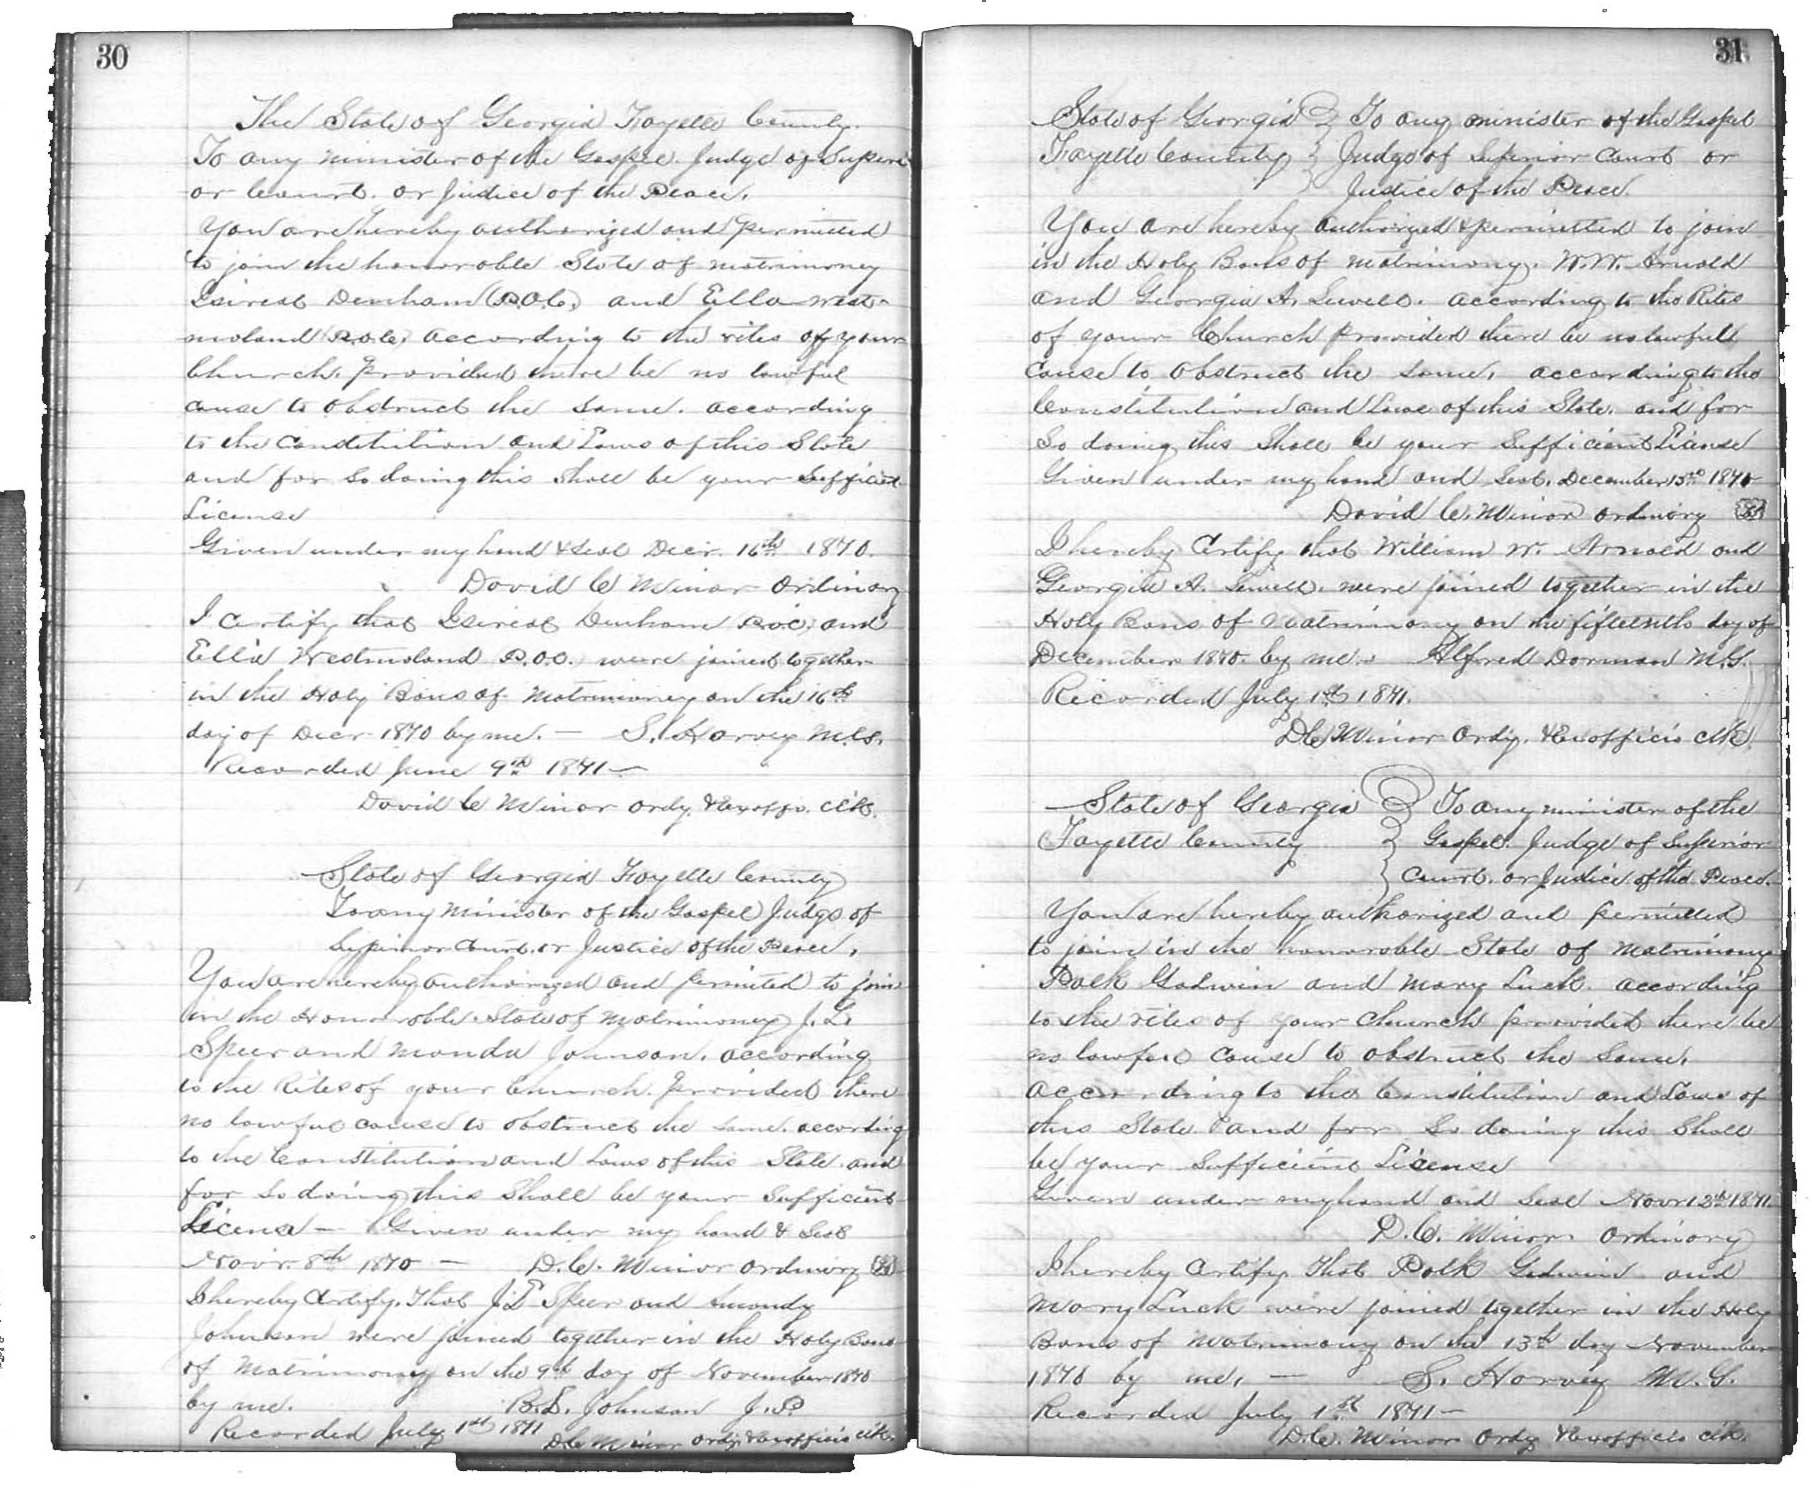 30
The State of Georgia Fayette County.
To any minister of the Gospel. Judge of Superi
or Court. or Justice of the Peace.
You are hereby authorized and permitted
to join the honorable State of matrimony
Denham (P.O.C.) and Ella West-
moland (P.O.C.) according to the rites of your
Church. provided there be no lawful
cause to obstruct the same. according
to the constitution and Laws of this State
and for so doing this shall be your sufficient
License
Given under my hand & seal Decr. 16th 1870.
David C Minor Ordinary
I certify that Denham P.O.C. and
Ella Westmoland P.O.C. were joined together
in the Holy Bans of Matrimony on the 16th
day of Decr 1870 by me. — S. Harvey M.G.
Recorded June 9th 1871 —
David C Minor Ordy. & Exoffo. Clk.
State of Georgia Fayette County
To any Minister of the Gospel Judge of
Superior Court. or Justice of the Peace.
You are hereby authorized and permited to join
in the Honorable State of Matrimony J. L.
Speer and Manda Johnson. according
to the Rites of your Church. provided there
no lawful cause to obstruct the same. according
to the Constitution and Laws of this State. and
for so doing this shall be your sufficient
License — Given under my hand & Seal
Novr. 8th 1870 — D. C. Minor Ordinary
I hereby Certify. That J. L Speer and Amandy
Johnson were joined together in the Holy Bans
of Matrimony on the 9th day of November 1870
by me. B. L. Johnson J. P.
Recorded July 1st 1871
D C Minor Ordy. & Exofficio Clk.
31
State of Georgia To any minister of the Gospel
Fayette County Judge of Superior Court or
Justice of the Peace.
You are hereby authorized & permitted to join
in the Holy Bans of matrimony. W. W. Arnold
and Georgia A. Sewell. according to the Rites
of your Church provided there be no lawfull
cause to obstruct the same, according to the
Constitution and Laws of this State. and for
so doing this shall be your sufficient License
Given under my hand and Seal. December 13th 1870
David C. Minor Ordinary
I hereby Certify that William W. Arnold and
Georgia A. Sewell. were joined together in the
Holy Bans of Matrimony on the fifteenth day of
December 1870. by me. Alfred Dorman M.G.
Recorded July 1st 1871.
D C Minor Ordy. & Exofficio Clk.
State of Georgia To any minister of the
Fayette County Gospel. Judge of Superior
Court. or Justice of the Peace.
You are hereby authorized and permitted
to join in the honorable State of Matrimony
Polk Godwin and Mary Luck. according
to the rites of your church provided there be
no lawful cause to obstruct the same.
according to the Constitution and Laws of
this State and for so doing this shall
be your sufficient License
Given under my hand and seal Novr 12th 1871.
D. C. Minor. Ordinary
I hereby Certify. That Polk Godwin and
Mary Luck were joined together in the Holy
Bans of Matrimony on the 13th day November
1870 by me. — S. Harvey M. G.
Recorded July 1st 1871 —
D. C. Minor Ordy & Exofficio Clk.